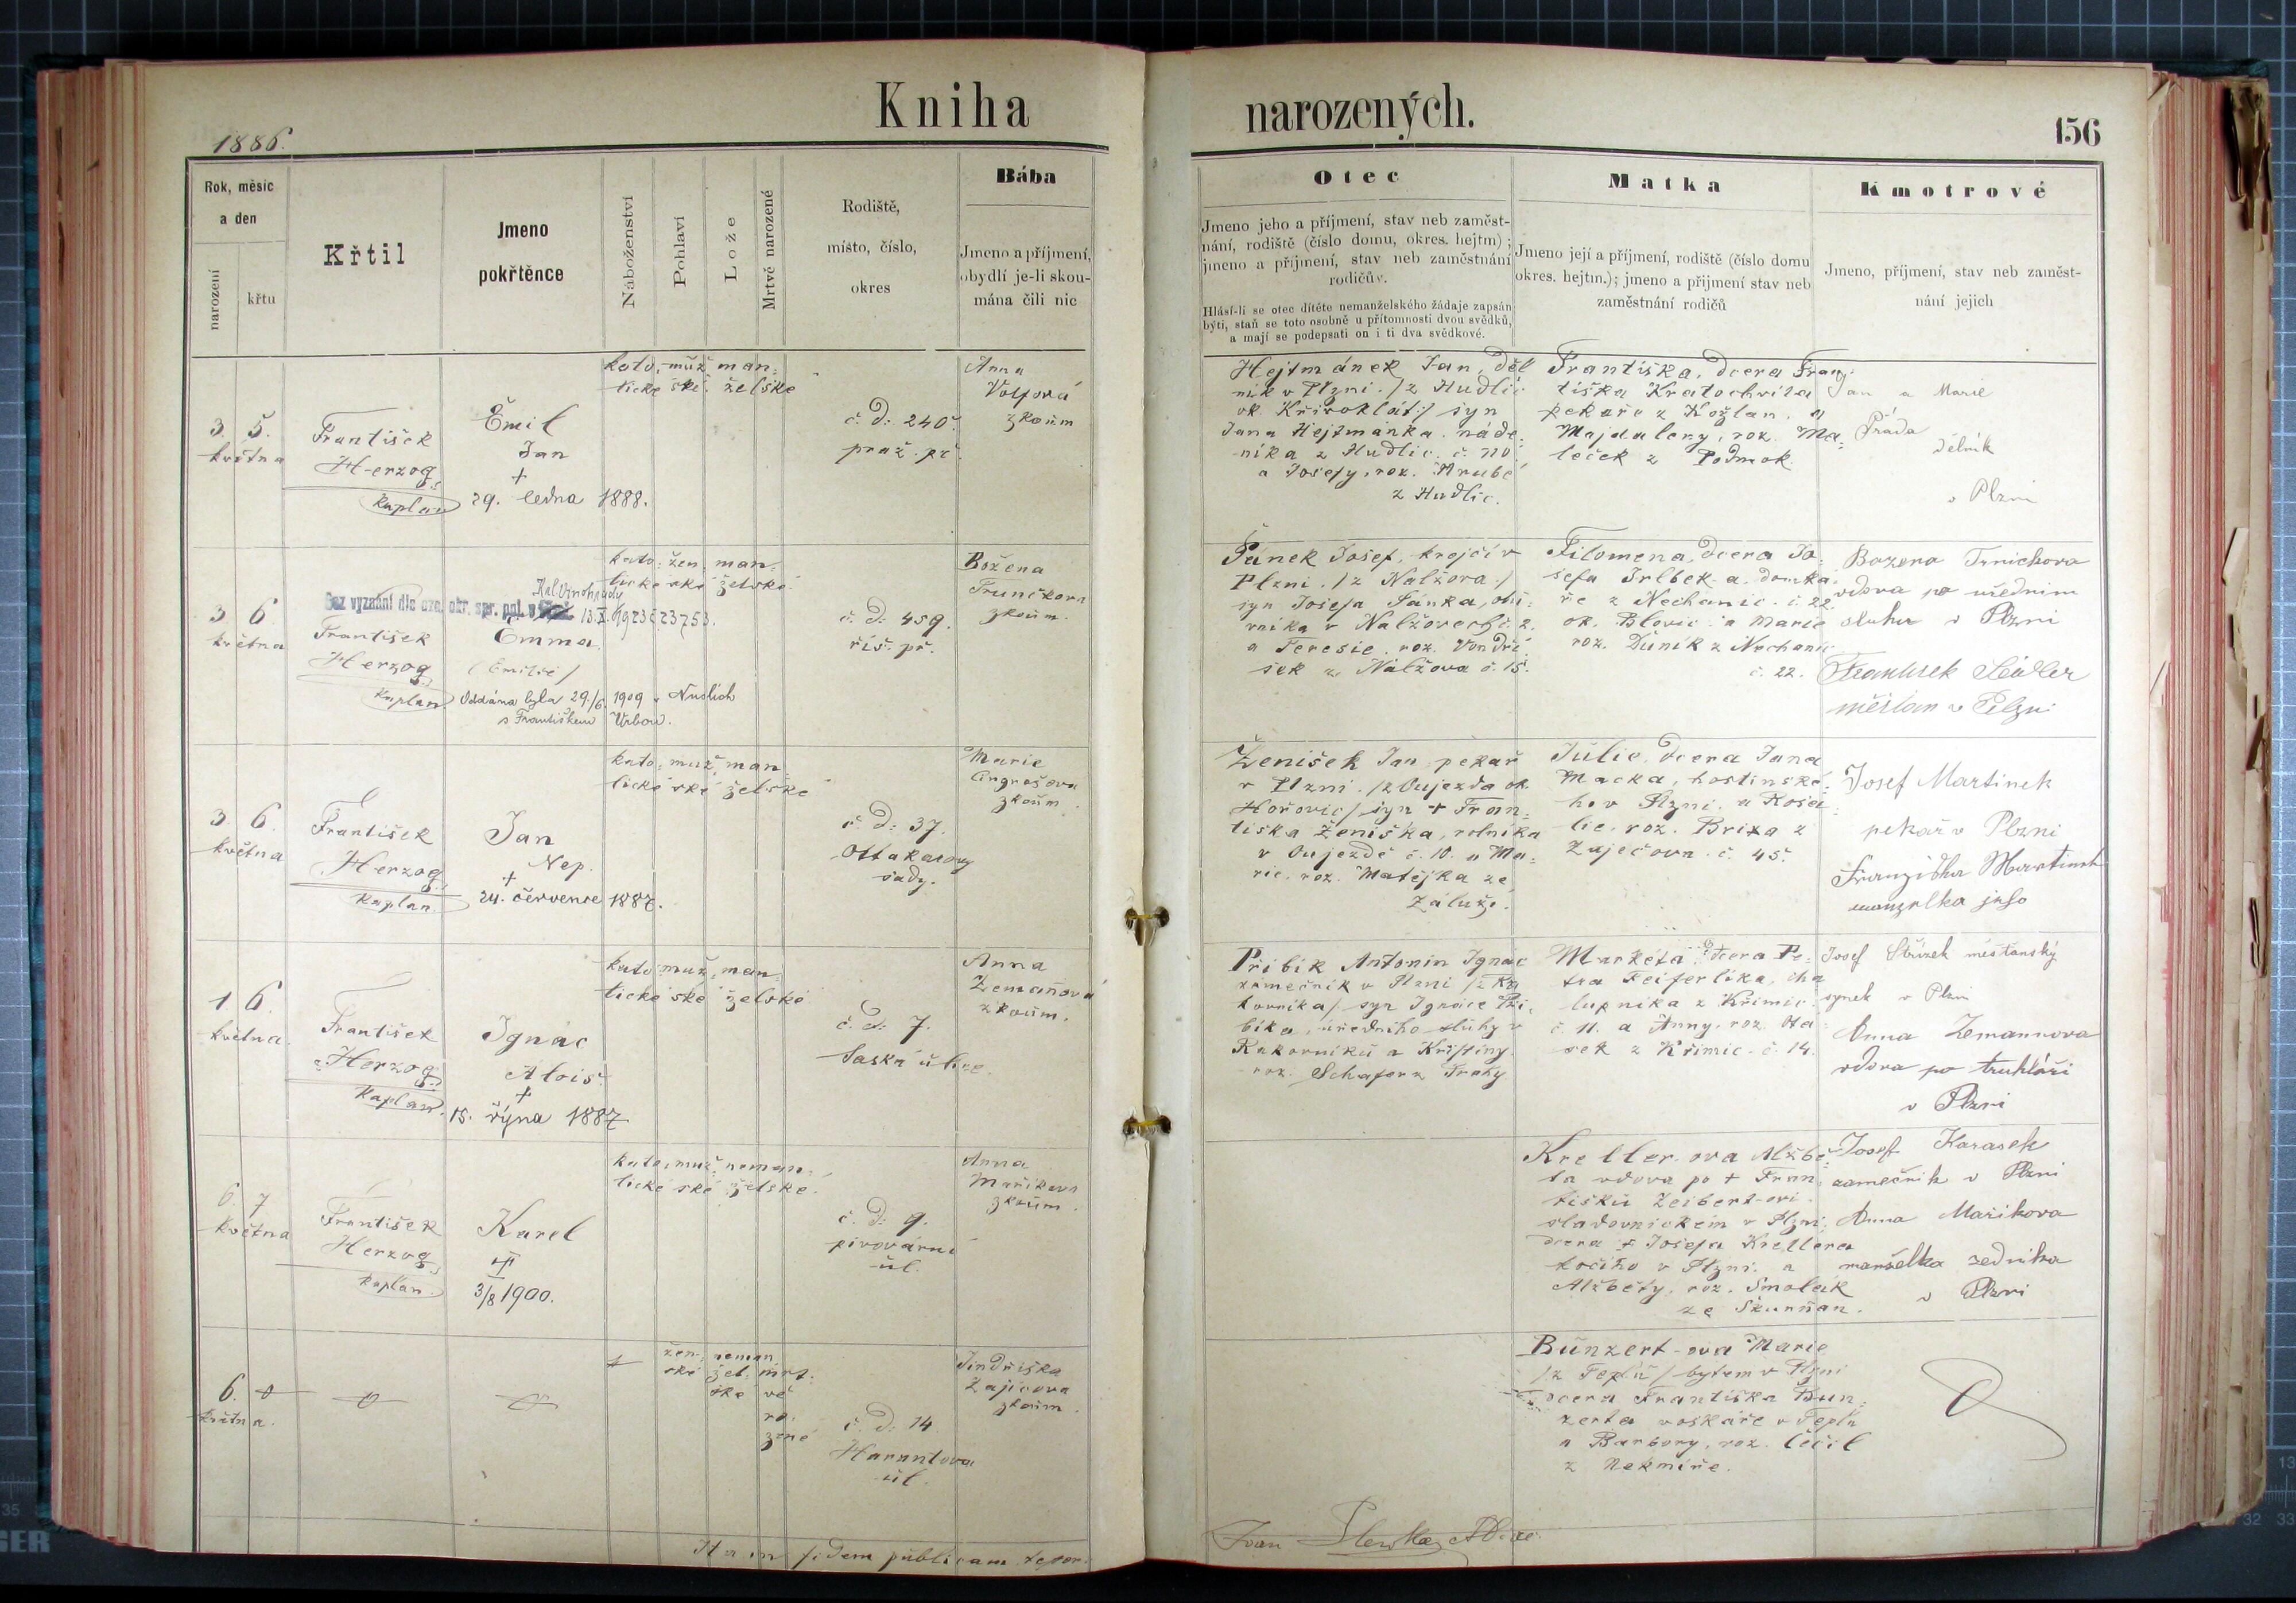 Kniha
narozených.
1886.
156
Rok, měsíc
a den
narození
křtu
Křtil
Jmeno
pokřtěnce
Náboženství
Pohlaví
Lože
Mrtvě narozené
Rodiště,
místo, číslo,
okres
Bába
Jmeno a příjmení,
obydlí je-li skou-
mána čili nic
Otec
Jmeno jeho a příjmení, stav neb zaměst-
nání, rodiště (číslo domu, okres. hejtm) ;
jmeno a příjmení, stav neb zaměstnání
rodičův.
Hlásí-li se otec dítěte nemanželského žádaje zapsán
býti, staň se toto osobně u přítomnosti dvou svědků,
a mají se podepsati on i ti dva svědkové.
Matka
Jmeno její a příjmení, rodiště (číslo domu
okres. hejtm.); jmeno a přijmení stav neb
zaměstnání rodičů
Kmotrové
Jmeno, příjmení, stav neb zaměst-
nání jejich
3. 5.
května
František
Herzog
kaplan
Emil
Jan
+
29. ledna 1888.
kato: muž man:
lické ské. želské
č. d: 240.
praž. př.
Anna
Volfová
zkoum
Hejtmánek Jan, děl
ník v Plzni. /z Hudlic
ok. Křivoklát:/ syn
Jana Hejtmánka. náde:
níka z Hudlic. č. 110.
a Josefy, roz. Hrubé
z Hudlic.
Františka, dcera Fran:
tiška Kratochvíla
pekaře z Kožlan. a
Majdaleny, roz. Ma:
leček z Podmok.
Jan a Marie
Práda
dělník
v Plzni
3 6
května
František
Herzog
kaplan
Bez vyznání dle ozn. okr. spr. pol. v
Král. Vinohrady
13.X.1923 č 23753.
Emma
(Emilie)
Oddána byla 29./6. 1909 v Nuslích
s Františkem Vrbou.
kato: žen: man:
lické ské želské
č. d: 459.
říš. př.
Božena
Truničkova
zkoum.
Pánek Josef, krejčí v
Plzni. /z Nalžova./
syn Josefa Pánka,
v Nalžovech č. 2.
a Teresie. roz. Vondrá
šek z Nalžova č. 15.
Filomena, dcera Jo:
sefa Irlbek-a, domka:
ře z Nechanic. č. 22.
ok. Blovic. a Marie
roz. Duník z Nechanic
č. 22.
vdova po úředním
sluhu v Plzni
František Sédler
měšťan v Plzni
3 6
května
František
Herzog
kaplan
Jan
Nep.
+
24. července 1887.
kato: muž man
lické ské želské
č. d: 37.
Ottakarovy
sady.
Marie
zkoum.
Ženíšek Jan, pekař
v Plzni. /z Oujezda ok
Hořovic/ syn + Fran:
tiška Ženíška, rolníka
v Oujezdě č. 10. a Ma:
rie, roz. Matějka ze
Záluží.
Julie, dcera Jana
Macka, hostinské:
ho v Plzni. a Rosa:
lie, roz. Brixa z
Zaječova. č. 45.
Josef Martínek
pekař v Plzni
manželka jeho
1 6.
května.
František
Herzog
kaplan.
Ignác
Alois.
+
15. října 1887
kato: muž, man:
lické ské želské
č. d: 7.
Saská ulice.
Anna
Zemanová
zkoum.
Přibík Antonín Ignác
zámečník v Plzni /z Ra
kovníka/, syn Ignáce Při:
bíka, úředního sluhy v
Rakovníku a Kristiny
roz. Schafer z Prahy
Markéta dcera Pe:
tra Feiferlíka, cha
lupníka z Křimic
č. 11. a Anny, roz. Ha:
sek z Křimic. č. 14.
Josef Střízek měšťanský
synek v Plzni
Anna Zemannova
vdova po truhláři
v Plzni
6. 7
května
František
Herzog
kaplan.
Karel
3/8 1900.
kato: muž neman:
lické ské želské.
č. d: 9.
pivovární
ul.
Anna
Maříkova
zkoum.
Kreller-ova Alžbě:
ta vdova po + Fran:
tišku Zeibert-ovi
sladovnickém v Plzni.
dcera + Josefa Krellera
kočího v Plzni. a
Alžběty, roz. Smolák
ze Skurňan.
Josef Karasek
zamečník v Plzni
Anna Mařikova
manželka zedníka
v Plzni
6.
května.
žen: neman
ské žel: mrt:
ské vě
na:
zené
č. d: 14
Harantova
ul.
Jindřiška
Zajícova
zkoum.
Bunzert-ova Marie
/z Teplé/ bytem v Plzni
dcera Františka Bun:
zerta voskáře v Teplé
a Barbory, roz. Cečil
z Nekmíře.
Ita in fidem publicam
Ivan